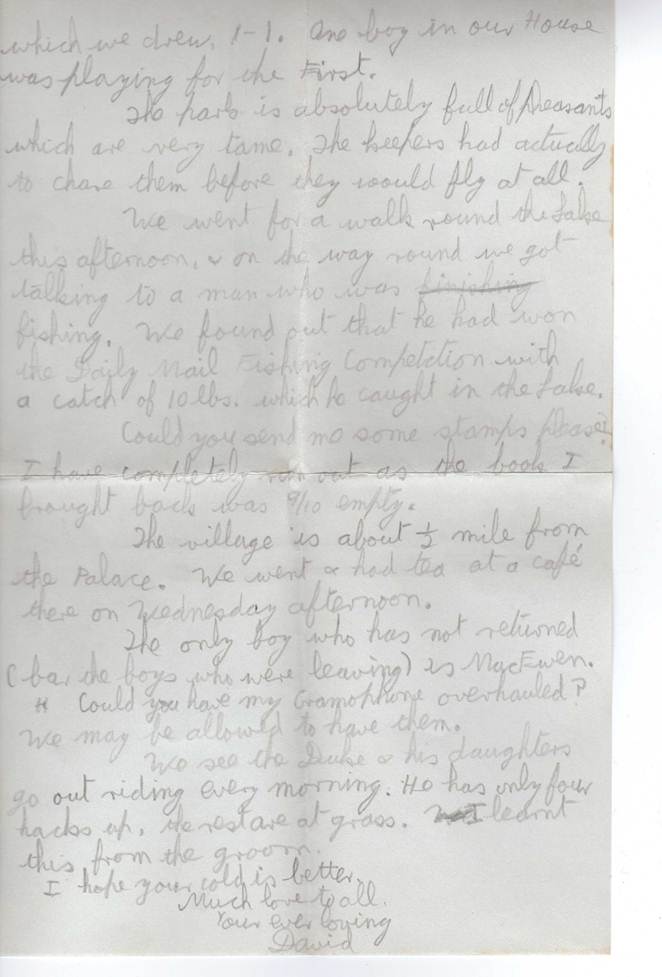 which we drew, 1-1. One boy in our House
was playing for the First.
The park is absolutely full of Pheasants
which are very tame. The keepers had actually
to chase them before they would fly at all.
We went for a walk round the Lake
this afternoon, & on the way round we got
talking to a man who was finishing
fishing. We found out that he had won
the Daily Mail Fishing Competition with
a catch of 10 lbs. which he caught in the Lake.
Could you send me some stamps please?
I have completely run out as the book I
brought back was 9/10 empty.
The village is about ½ mile from
the Palace. We went & had tea at a café
there on Wednesday afternoon.
The only boy who has not returned
(bar the boys who were leaving) is MacEwen.
Could you have my Gramophone overhauled?
We may be allowed to have them.
We see the Duke & his daughters
go out riding every morning. He has only four
hacks up, the rest are at grass. I learnt
this from the groom.
I hope your cold is better.
Much love to all.
Your ever loving
David